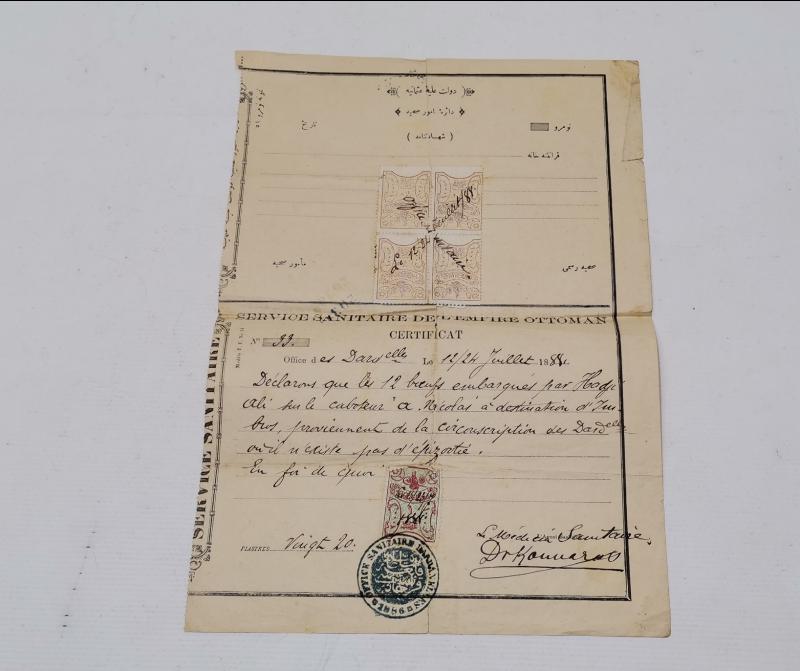 ( دولت علیه عثمانیه )
دائرهٔ امور صحیه
( شهادتنامه )
نومرو
تاریخ
قرانتینه خانه
مأمور صحیه
SERVICE SANITAIRE DE L'EMPIRE OTTOMAN
CERTIFICAT
N° 33
Office des Dardelle Le 12/24 Juillet 1888
Déclarons que les 12 bœufs embarqués par Hadji
Ali sur le caboteur "A Nicolas" à destination d'Im-
bros, proviennent de la circonscription des Dardelle
où il n'existe pas d'épizootie.
En foi de quoi
PIASTRES Vingt 20.
Le Médecin Sanitaire,
Dr
OFFICE SANITAIRE DARDANELLES
1886
SERVICE SANITAIRE